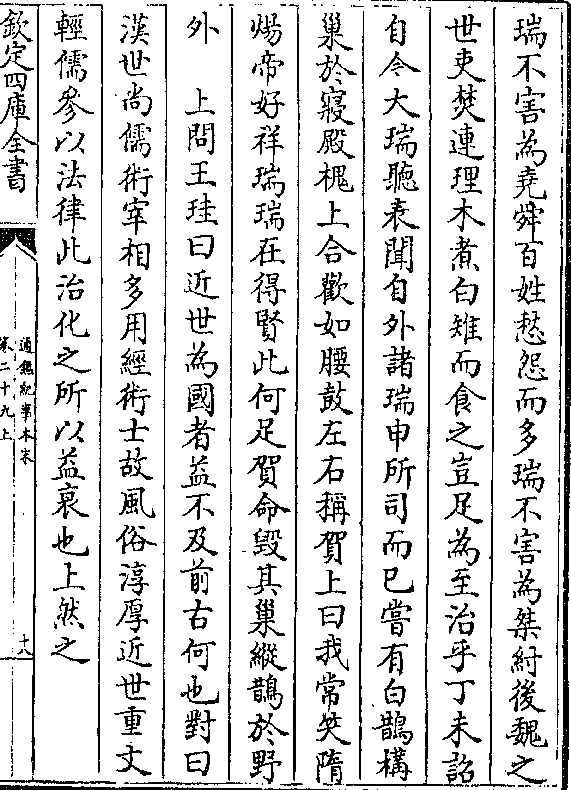 瑞不害為堯舜百姓愁怨而多瑞不害為桀紂後魏之
世吏焚連理木煮白雉而食之豈足為至治乎丁未詔
自今大瑞聽表聞自外諸瑞申所司而已嘗有白鵲構
巢於寢殿槐上合歡如腰鼓左右稱賀上曰我常笑隋
煬帝好祥瑞瑞在得賢此何足賀命毀其巢縱鵲於野
外　上問王珪曰近世為國者益不及前古何也對曰
漢世尚儒術宰相多用經術士故風俗淳厚近世重文
輕儒參以法律此治化之所以益衰也上然之
欽定四庫全書
通鑑紀事本末
卷二十九上
十八